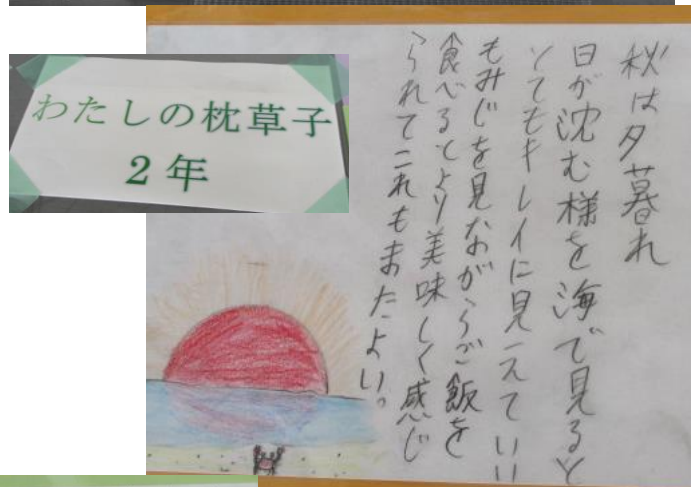 わたしの枕草子
2年
秋は夕暮れ
日が沈む様を海で見ると
とてもキレイに見えていい
もみじを見ながらご飯を
食べるとより美味しく感じ
られてこれもまたよい。